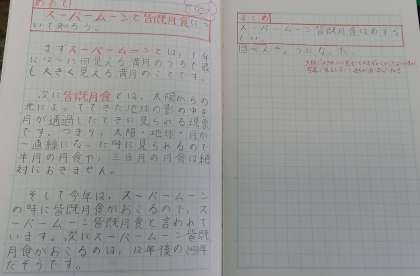 めあて
スーパームーンと皆既月食につ
いて知ろう。
まずスーパームーンとは、1年
に見える満月のうち
も大きく見える満月のことです。
次に皆既月食とは、太陽からの
光によってできた地球の影の中を
月が通過したときに見られる現象
です。つまり、太陽・地球・月が
一直線になった時に見られるので
半月の月食や、三日月の月食は絶
対におきません。
そして今年は、スーパームーン
の時に皆既月食がおこるので、ス
ーパームーン皆既月食と言われて
います。次にスーパームーン皆既
月食がおこるのは、12年後の
だそうです。
まとめ
スーパームーン皆既月食はめずら
しい